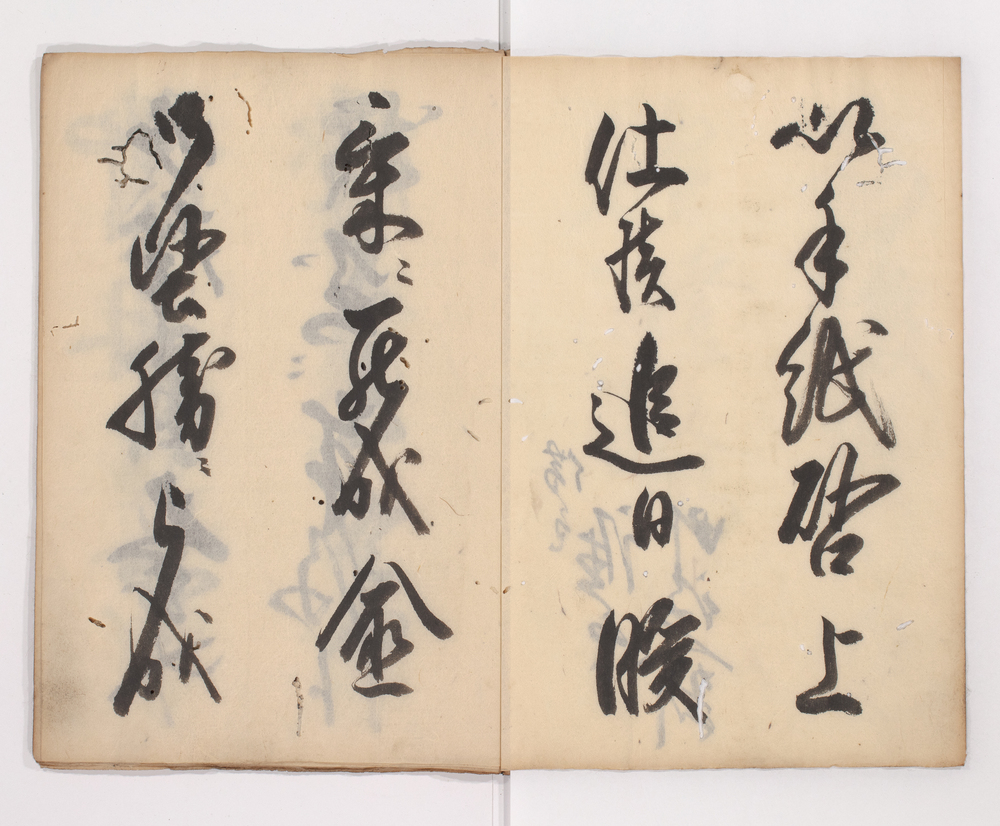 以手紙啓上
仕候追日暖
氣ニ罷成愈
御堅勝ニ被成